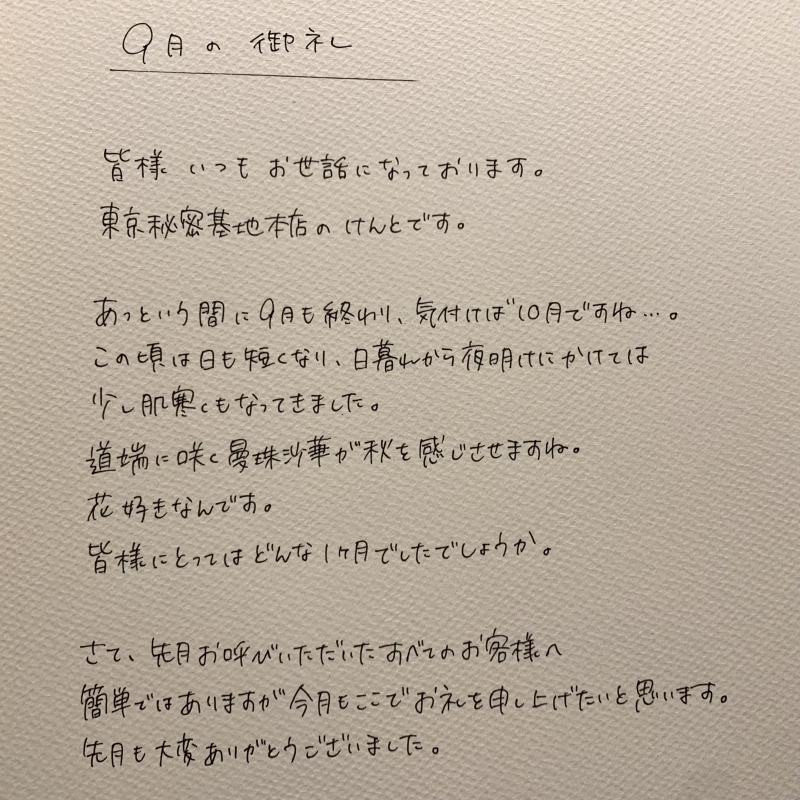 9月の御礼
皆様 いつもお世話になっております。
東京秘密基地本店のけんとです。
あっという間に9月も終わり、気付けば10月ですね…。
この頃は日も短くなり、日暮れから夜明けにかけては
少し肌寒くもなってきました。
道端に咲く曼珠沙華が秋を感じさせますね。
花好きなんです。
皆様にとってはどんな1ヶ月でしたでしょうか。
さて、先月お呼びいただいたすべてのお客様へ
簡単ではありますが今月もここでお礼を申し上げたいと思います。
先月も大変ありがとうございました。